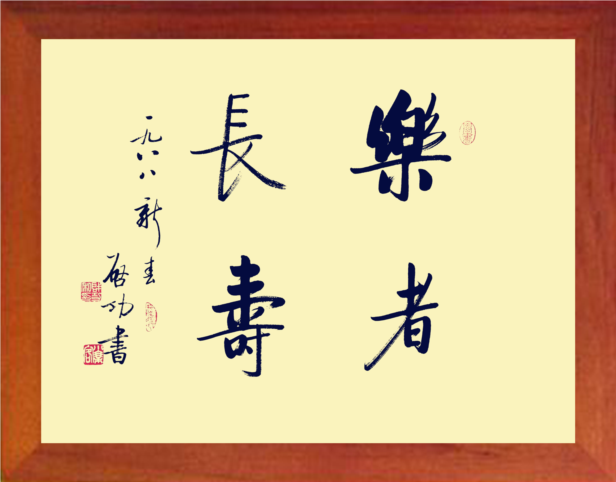 樂者
長壽
一九八八新春
啓功書